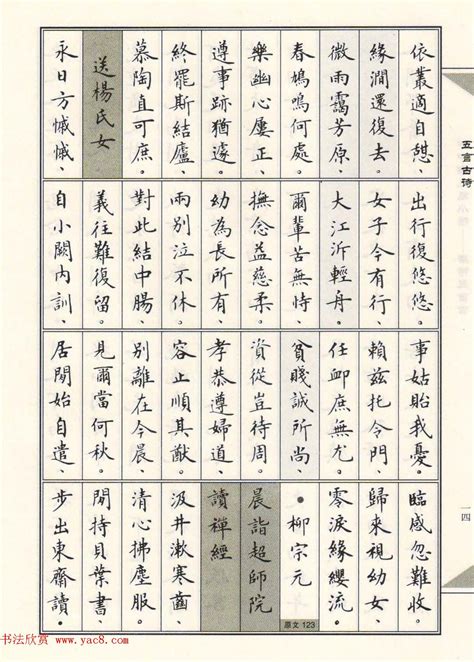 依叢適自憇、
緣澗還復去。
微雨靄芳原、
春鳩鳴何處。
樂幽心屢正、
遵事跡猶遽。
終罷斯結廬、
慕陶直可庶。
送楊氏女
永日方慽慽、
出行復悠悠。
女子今有行、
大江泝輕舟。
爾輩苦無恃、
撫念益慈柔。
幼為長所有、
兩別泣不休。
對此結中腸、
義往難復留。
自小闕內訓、
事姑貽我憂。
賴茲托令門、
任卹庶無尤。
貧賤誠所尚、
資從豈待周。
孝恭遵婦道、
容止順其猷。
別離在今晨、
見爾當何秋。
居閒始自遣、
臨感忽難收。
歸來視幼女、
零淚緣纓流。
•柳宗元
原文 123
晨詣超師院
讀禪經
汲井漱寒齒、
清心拂塵服。
閒持貝葉書、
步出東齋讀。
五言古诗
一四
书法欣赏 www.yac8.com